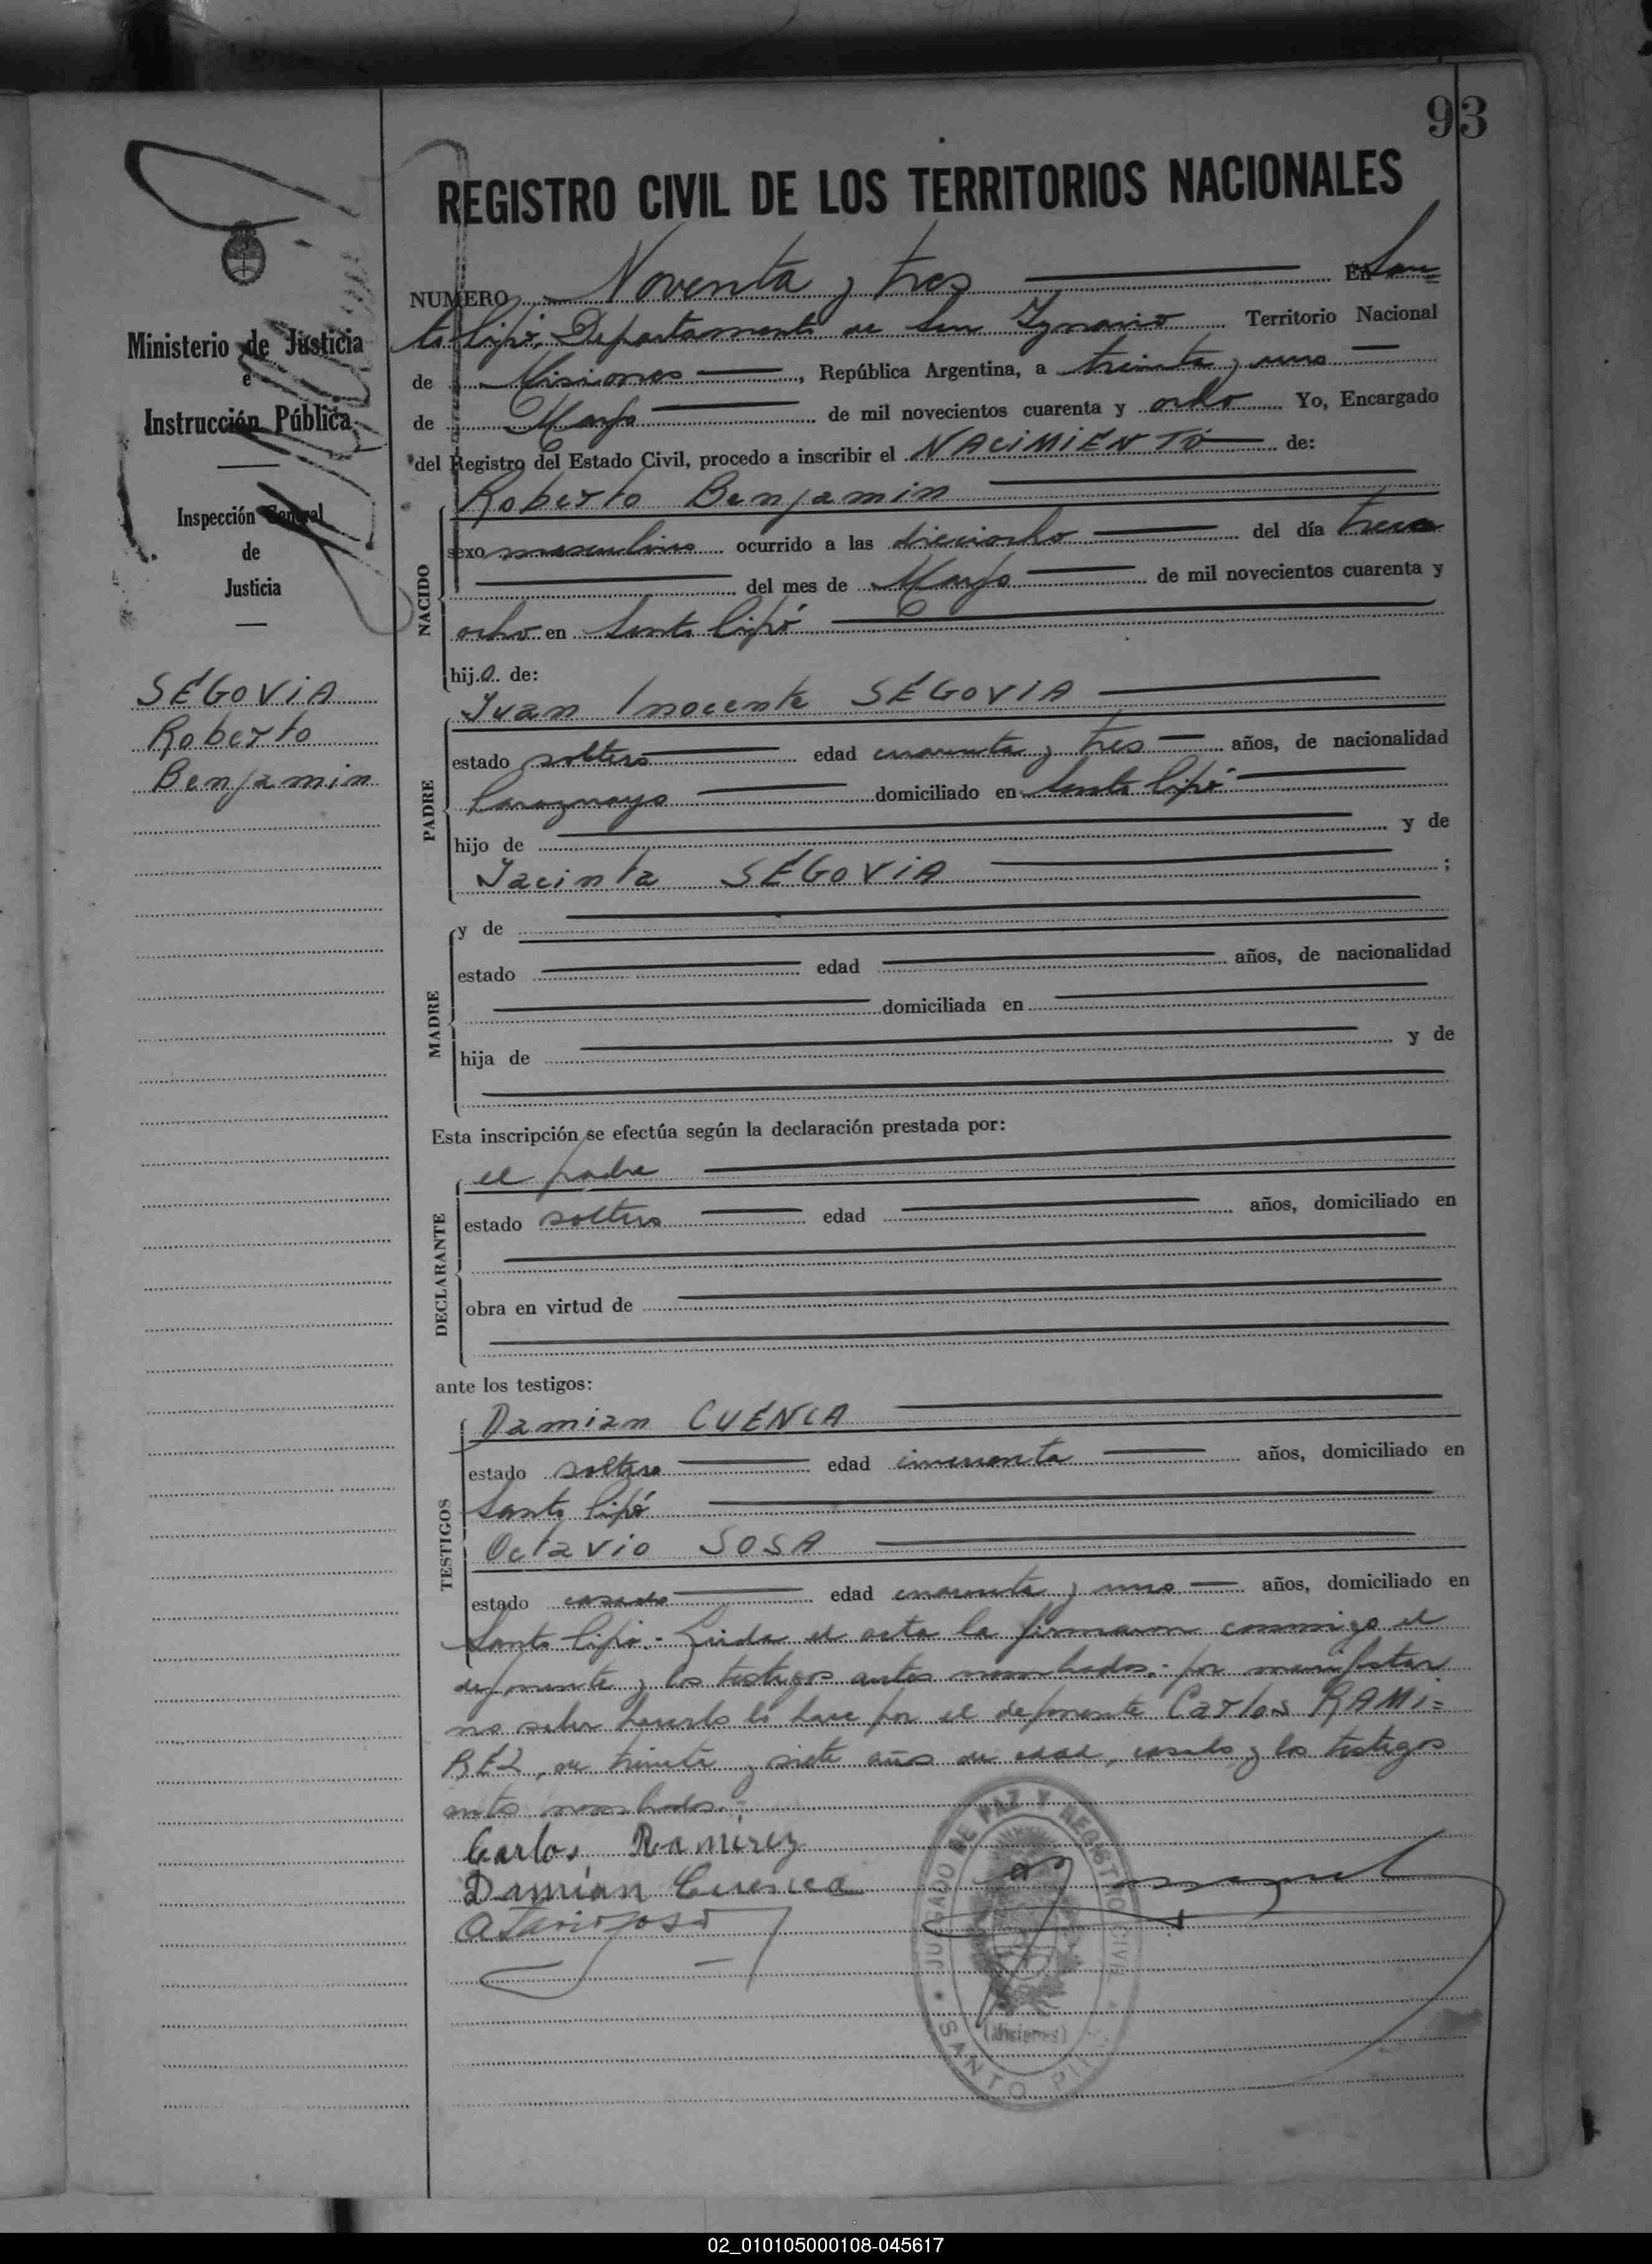 93
REGISTRO CIVIL DE LOS TERRITORIOS NACIONALES
NUMERO Noventa y tres En San=
to Pipó, Departamento de San Ignacio Territorio Nacional
de Misiones, República Argentina, a treinta y uno
de Marzo de mil novecientos cuarenta y ocho Yo, Encargado
del Registro del Estado Civil, procedo a inscribir el NACIMIENTO de:
Ministerio de Justicia
e
Instrucción Pública
Inspección General
de
Justicia
SEGOVIA
Roberto
Benjamin
NACIDO
Roberto Benjamin
sexo masculino ocurrido a las dieciocho del día trece
del mes de Marzo de mil novecientos cuarenta y
ocho en Santo Pipó
hijo de:
PADRE
Juan Inocente SEGOVIA
estado soltero edad cuarenta y tres años, de nacionalidad
Paraguayo domiciliado en Santo Pipó
hijo de y de
Jacinta SEGOVIA ;
MADRE
y de
estado edad años, de nacionalidad
domiciliada en
hija de y de
Esta inscripción se efectúa según la declaración prestada por:
DECLARANTE
el padre
estado soltero edad años, domiciliado en
obra en virtud de
ante los testigos:
TESTIGOS
Damian CUENCA
estado soltero edad cincuenta años, domiciliado en
Santo Pipó
Octavio SOSA
estado casado edad cuarenta y uno años, domiciliado en
Santo Pipó.- Leida el acta la firmaron conmigo el
deponente y los testigos antes nombrados.- por manifestar
no saber hacerlo lo hace por el deponente Carlos RAMI=
REZ, de treinta y siete años de edad, casado y los testigos
antes nombrados.-
Carlos Ramirez
Damián Cuenca
JUZGADO DE PAZ Y REGISTRO CIVIL
(Misiones)
SANTO PIPÓ
02_010105000108-045617